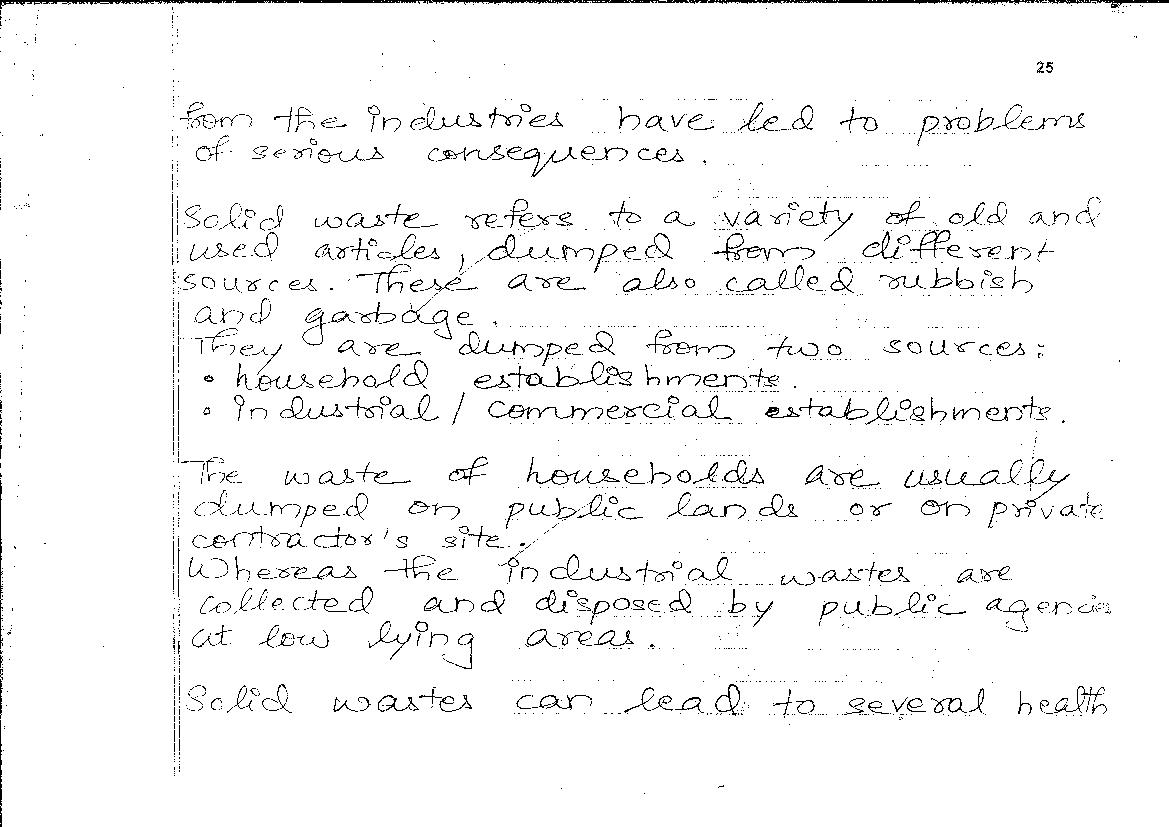 25
from the industries have led to problems
of serious consequences.
Solid waste refers to a variety of old and
used articles, dumped from different
sources. These are also called rubbish
and garbage.
They are dumped from two sources:
• household establishments.
• industrial / commercial establishments.
The waste of households are usually
dumped on public lands or on private
contractor's site.
Whereas the industrial wastes are
collected and disposed by public agencies
at low lying areas.
Solid wastes can lead to several health